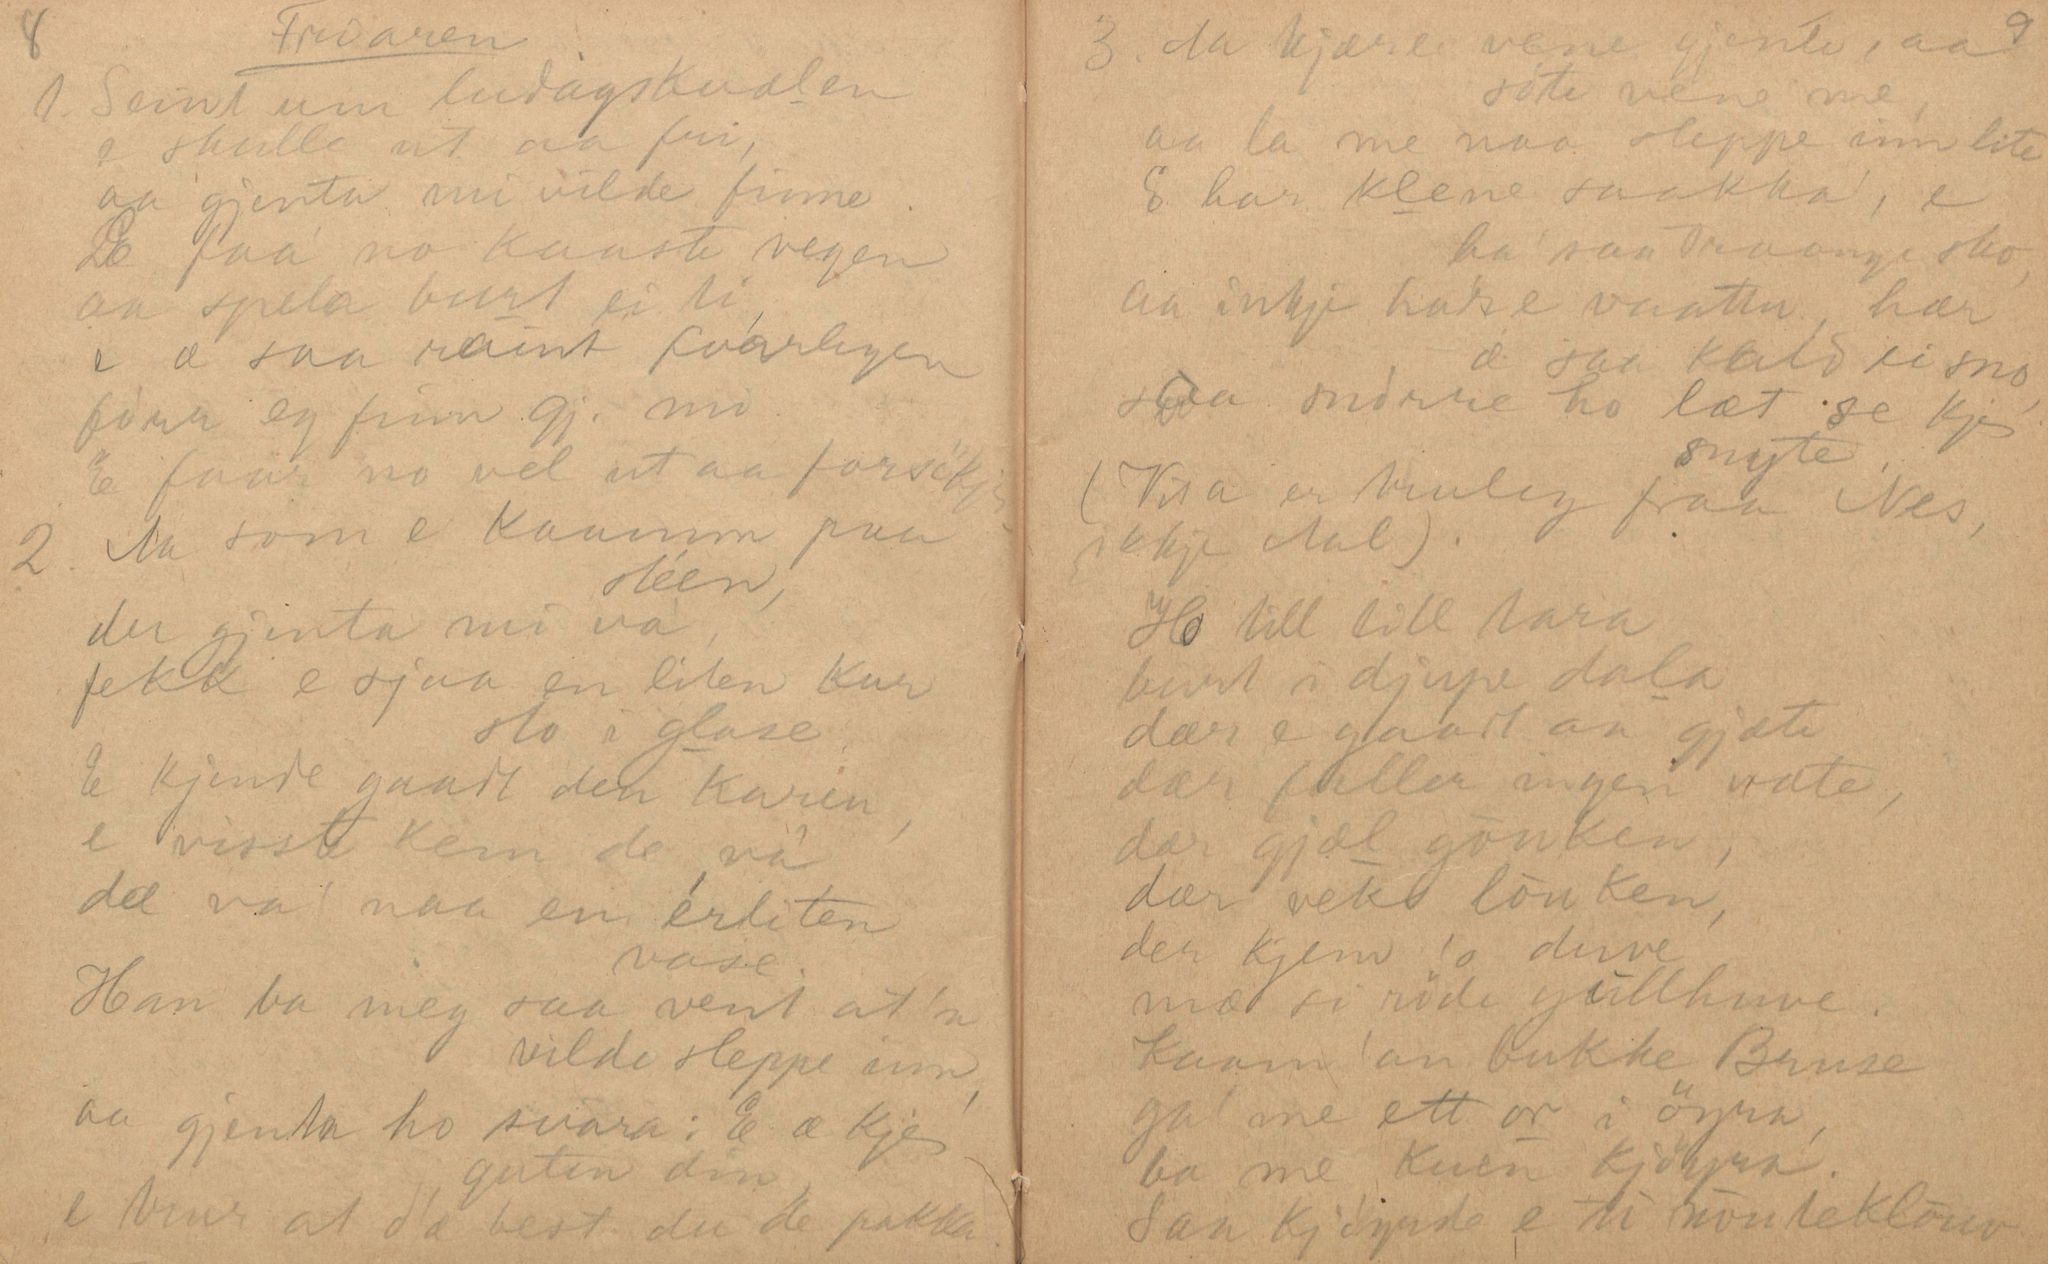 8
Friaren
1. Seint um ludagskvælen
e skulle ut aa fri,
aa gjenta mi vilde finne.
De faa no kaaste vegen
aa spela burt ei ti,
e æ saa raint faarlegen
förr eg finn gj. mi
E faar no vel ut aa forsökje
2. Aa som e kaamm paa
steen,
der gjenta mi va,
fekk e sjaa en liten kar
sto i glase.
E kjende gaadt den karen,
e visste kem de va
dæ va' naa en erliten
vase.
Han ba meg saa vent at'n
vilde sleppe inn,
aa gjenta ho svara: E æ kje
guten din,
e trur at d'æ best du de pakka.
9
3. Aa kjære vene gjente, aa
söte vene me,
aa la me naa sleppe inn lite
E har klene saakka', e
ha' saa traange sko,
aa inkje har e vaatta, hær
æ saa kald ei sno,
saa snörre ho læt se kje
snyte.
(Visa er truleg fraa Nes,
ikkje Aal).
Ho till till tara
burt i djupe dala
dær e gaadt aa gjæte
dær faller ingen væte,
dær gjæl gönken,
dær veks lönken,
der kjem 'o duve
mæ si röde gullhuve.
Kaam 'an bukke Bruse
ga' me ett or i öyra,
ba me kuen kjöyra.
Saa kjöyrde e ti